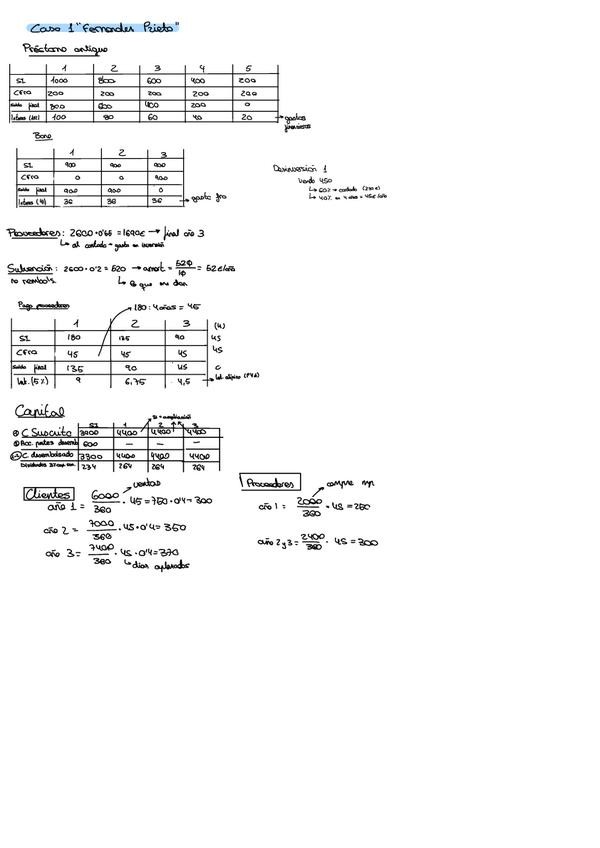 Caso 1 "Fernandes Prieto"
Préstamo antiguo
1 2 3 4 5
SI 1000 800 600 400 200
CFRO 200 200 200 200 200
Saldo final 800 600 400 200 0
100 80 60 40 20 → gastos financieros
Bono
1 2 3
SI 900 900 900
CFRO 0 0 900
Saldo final 900 900 0
36 36 36 → gasto fro
Desinversión 1
Vendo 450
↳ 60% → contado (270€)
↳ 40% en 4 años = 45€/año
Proveedores: 2600·0'65 = 1690€ → final año 3
↳ al contado = gasto en inversión
Subvención: 2600·0'2 = 520 → amort = 520/10 = 52€/año
no reembols. ↳ lo que me dan
Pago proveedores → 180:4 años = 45
1 2 3 (4)
SI 180 135 90 45
CFRO 45 45 45 45
Saldo final 135 90 45 0
Int. (5%) 9 6,75 4,5
Capital
SI 1 2 3
SI + ampliación
⊕ C Suscrito 3900 4400 4400 4400
600 — — —
C desembolsado 3300 4400 4400 4400
Dividendos 234 264 264 264
Clientes → ventas
año 1 = 6000/360 · 45 = 750·0'4 = 300
año 2 = 7000/360 · 45·0'4 = 350
año 3 = 7400/360 · 45·0'4 = 370
↳ días aplazados
Proveedores → compre mp
año 1 = 2000/360 · 45 = 250
año 2 y 3 = 2400/360 · 45 = 300